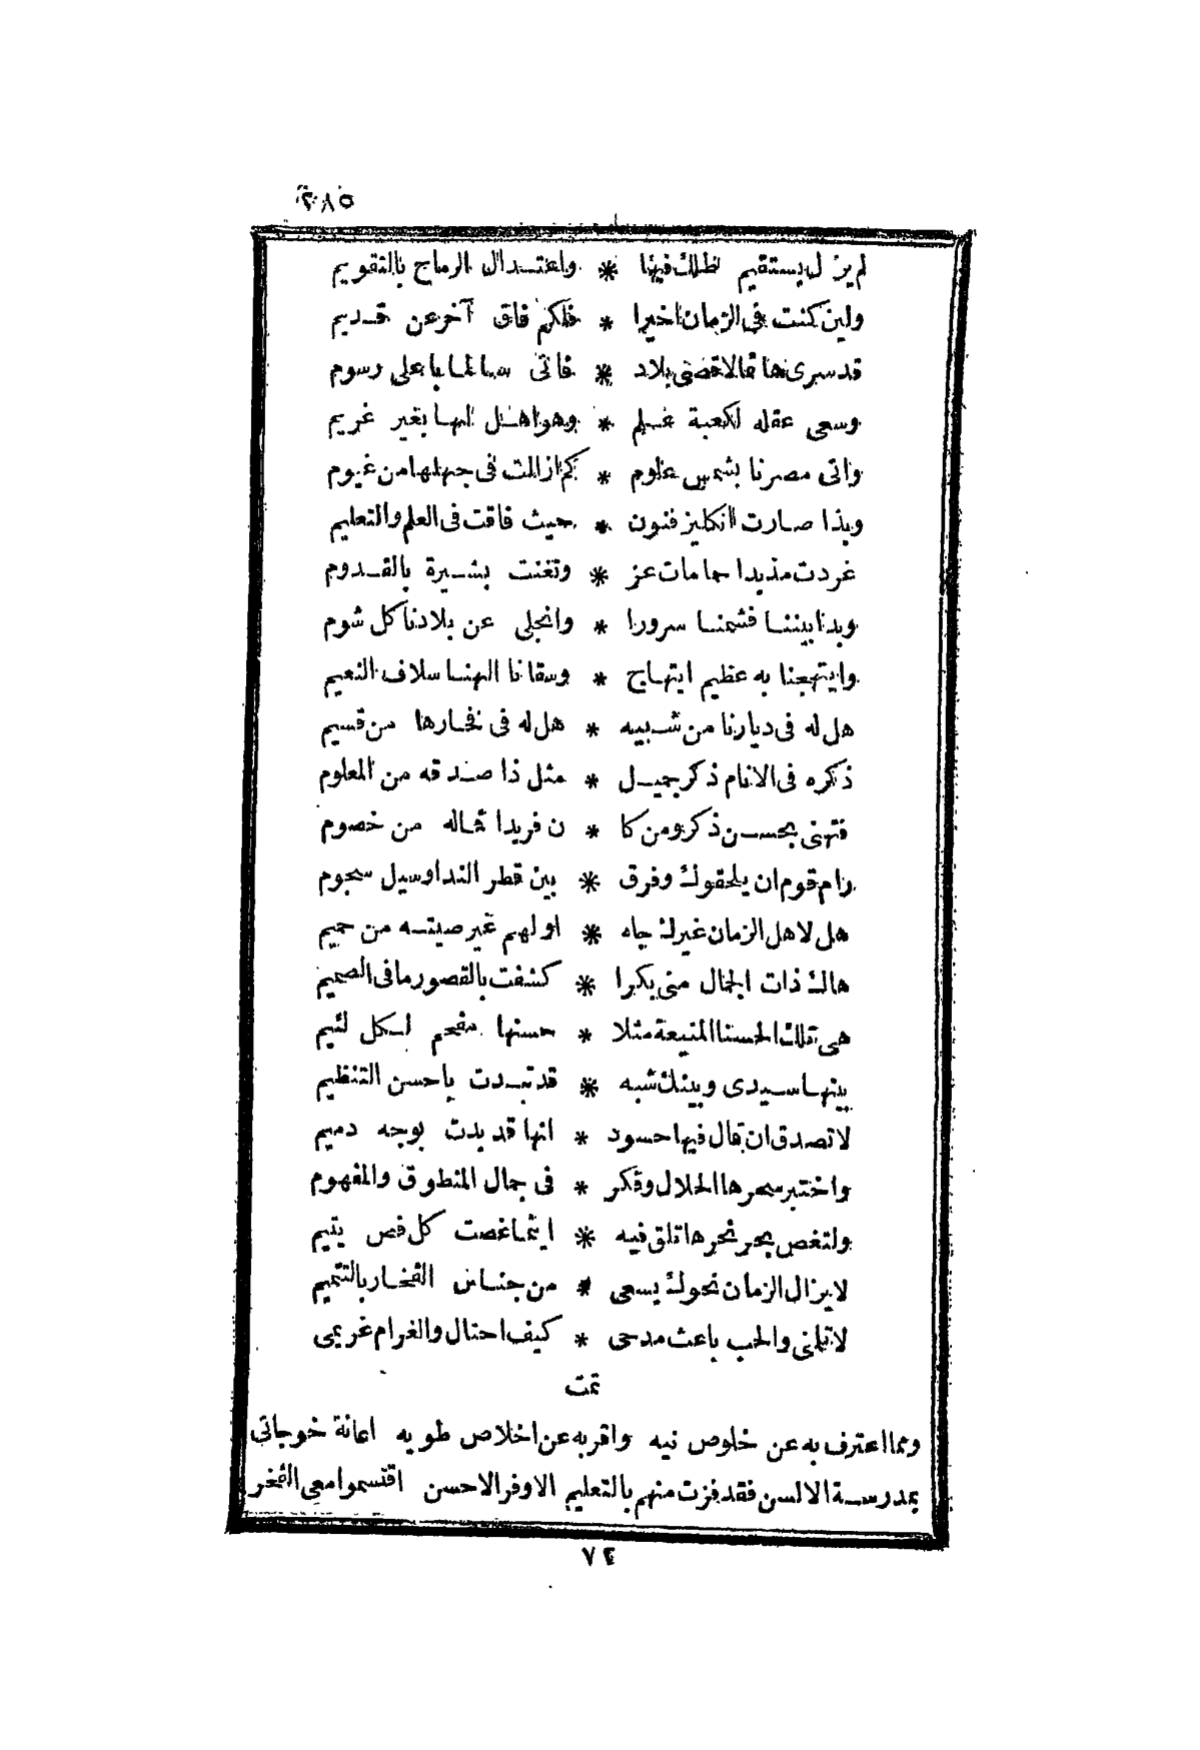 ٥٨٥
لم يزل يستقيم ظلك فيها * واعتدال الرماح بالتقويم
ولين كنت فى الزمان اخيرا * فلكم فاق آخر عن قديم
قد سرى بلاد * فاتى على رسوم
وسعى عقله لكعبة علم * وهو اهل لها بغير غريم
واتى مصرنا بشمس علوم * كم ازالت فى جهلها من غيوم
وبذا صارت انكليز فنون * حيث فاقت فى العلم والتعليم
غردت مذ بدا حمامات عز * وتغنت بشيرة بالقدوم
وبدا بيننا فشمنا سرورا * وانجلى عن بلادنا كل شوم
وابتهجنا به عظيم ابتهاج * وسقانا الهنا سلاف النعيم
هل له فى ديارنا من شبيه * هل له فى فخارها من قسيم
ذكره فى الانام ذكر جميل * مثل ذا صدقه من المعلوم
فتهنى بحسن ذكر ومن كا * ن فريدا ثماله من خصوم
رام قوم ان يلحقوك وفرق * بين قطر الندا وسيل سجوم
هل لاهل الزمان غيرك جاه * او لهم غير صيته من حميم
هاك ذات الجمال منى بكرا * كشفت بالقصور ما فى الصميم
هى تلك الحسنا المنيعة مثلا * حسنها مفحم لكل لئيم
بينها سيدى وبينك شبه * قد تبدت باحسن التنظيم
لا تصدق ان قال فيها حسود * انها قد بدت بوجه دميم
واختبر سحرها الحلال وفكر * فى جمال المنطوق والمفهوم
ولتغص بحر نحرها تلق فيه * اينما غصت كل فص يتيم
لا يزال الزمان نحوك يسعى * من جناس الفخار بالتتميم
لا تلمنى والحب باعث مدحى * كيف احتال والغرام غريمى
تمت
ومما اعترف به عن خلوص نيه واقر به عن اخلاص طويه اعانة خوجاتى
بمدرسة الالسن فقد فزت منهم بالتعليم الاوفر الاحسن اقتسموا معى الفخر
٧٤